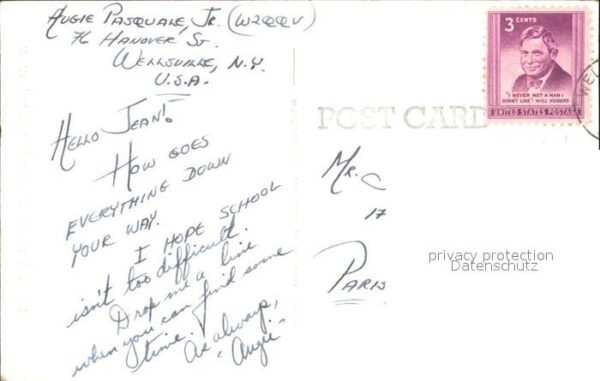 Augie Pasquale, Jr. (W2QQV)
76 Hanover St.
Wellsville, N.Y.
U.S.A.
Hello Jean!
How goes
everything down
your way.
I hope school
isn't too difficult.
Drop me a line
when you can find some
time.
As always,
"Augie"
3 CENTS
"I NEVER MET A MAN I
DIDN'T LIKE" - WILL ROGERS
UNITED STATES POSTAGE
WEL
POST CARD
Mr.
17
Paris
privacy protection
Datenschutz